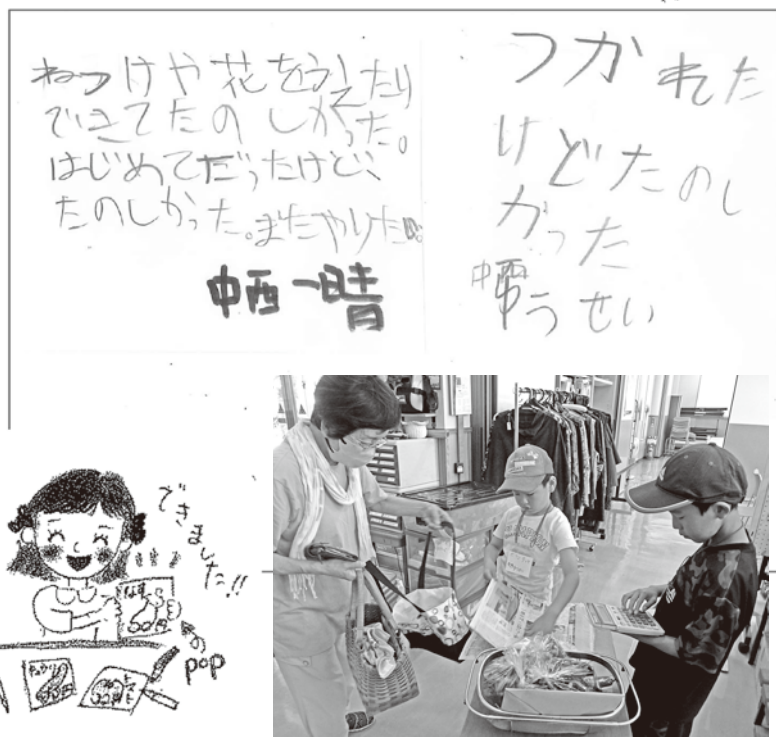 ねつけや花をうえたり
できてたのしかった。
はじめてだったけど、
たのしかった。またやりたい。
中西一晴
つかれた
けどたのし
かった
中西ゆうせい
できました!!
なす
50円
のpop